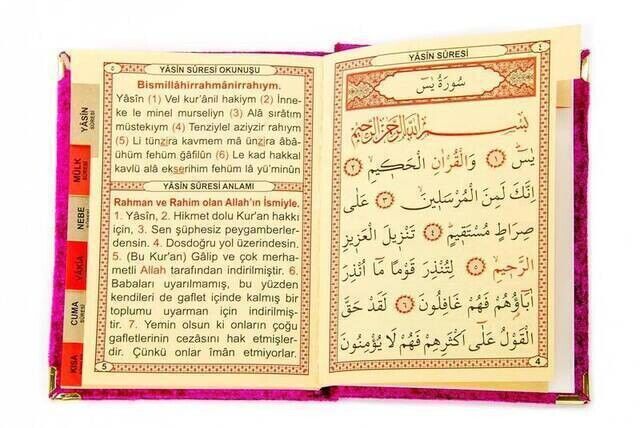 ٤
YÂSÎN SÛRESİ
سُورَةُ يٰسٓ
بِسْمِ اللّٰهِ الرَّحْمٰنِ الرَّحِيمِ
يٰسٓ ﴿١﴾ وَالْقُرْاٰنِ الْحَكِيمِ ﴿٢﴾
اِنَّكَ لَمِنَ الْمُرْسَلِينَ ﴿٣﴾ عَلٰى
صِرَاطٍ مُسْتَقِيمٍ ﴿٤﴾ تَنْزِيلَ الْعَزِيزِ
الرَّحِيمِ ﴿٥﴾ لِتُنْذِرَ قَوْمًا مَٓا اُنْذِرَ
اٰبَٓاؤُ۬هُمْ فَهُمْ غَافِلُونَ ﴿٦﴾ لَقَدْ حَقَّ
الْقَوْلُ عَلٰٓى اَكْثَرِهِمْ فَهُمْ لَا يُؤْمِنُونَ
4
٥
YÂSÎN SÛRESİ OKUNUŞU
Bismillâhirrahmânirrahıym.
Yâsîn (1) Vel kur'ânil hakiym (2) İnne-
ke le minel murseliyn (3) Alâ sırâtım
müstekıym (4) Tenziylel aziyzir rahıym
(5) Li tünzira kavmem mâ ünzira âbâ-
ühüm fehüm ğâfilûn (6) Le kad hakkal
kavlü alâ ekserihim fehüm lâ yü'minûn
YÂSÎN SÛRESİ ANLAMI
Rahman ve Rahim olan Allah'ın İsmiyle.
1. Yâsîn, 2. Hikmet dolu Kur'an hakkı
için, 3. Sen şüphesiz peygamberler-
densin. 4. Dosdoğru yol üzerindesin.
5. (Bu Kur'an) Gâlip ve çok merha-
metli Allah tarafından indirilmiştir. 6.
Babaları uyarılmamış, bu yüzden
kendileri de gaflet içinde kalmış bir
toplumu uyarman için indirilmiş-
tir. 7. Yemin olsun ki onların çoğu
gafletlerinin cezasını hak etmişler-
dir. Çünkü onlar îmân etmiyorlar.
5
YÂSİN
SÛRESİ
MÜLK
SÛRESİ
NEBE
SÛRESİ
VÂKIA
CUMA
SÛRESİ
KISA